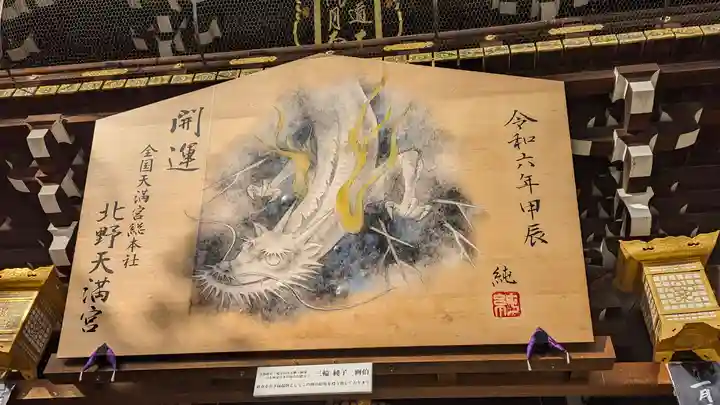 令和六年甲辰
純
開運
全国天満宮総本社
北野天満宮
三輪 純子 画伯
一月